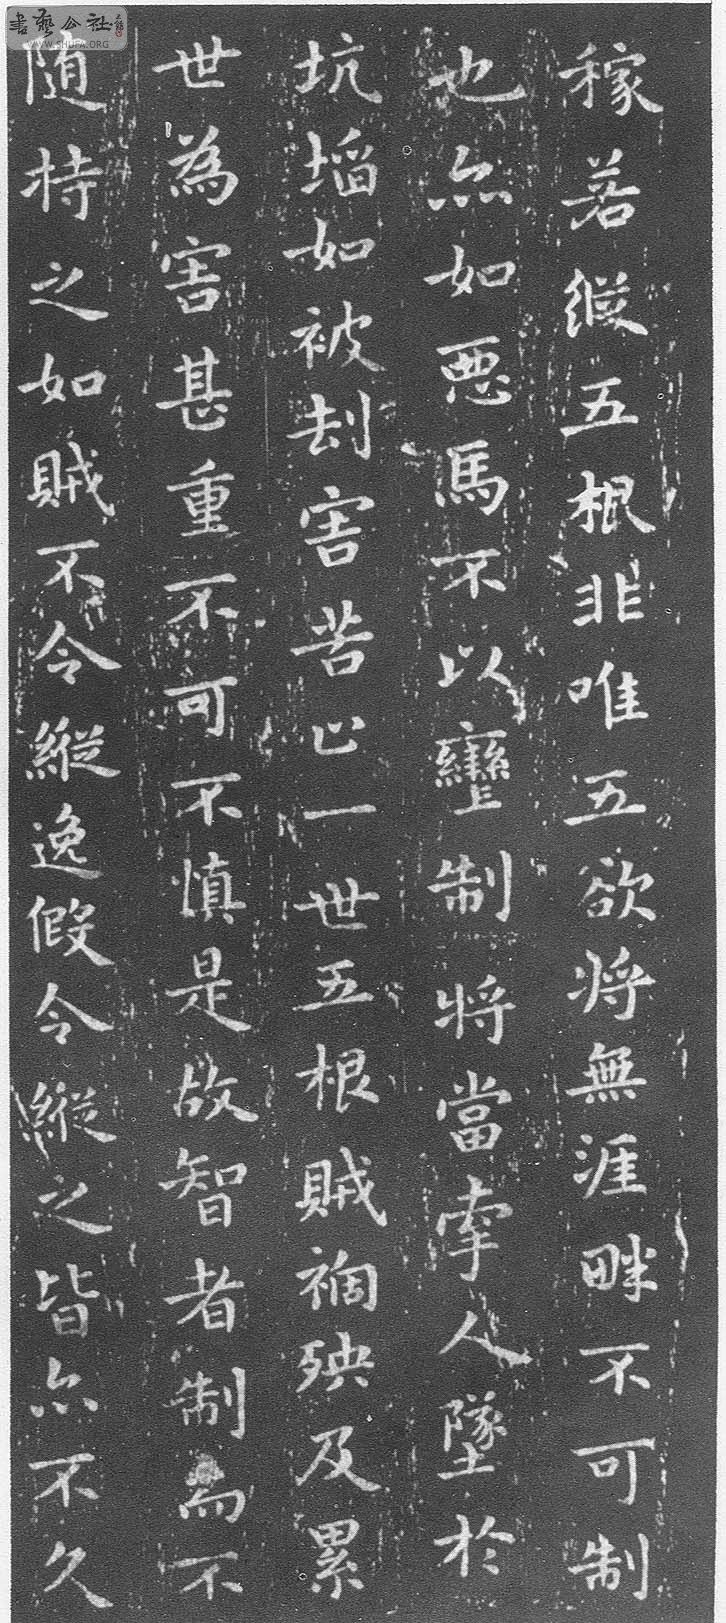 稼若縱五根非唯五欲将無涯畔不可制
也亦如惡馬不以轡制将當牽人墜於
坑埳如被刦害苦止一世五根賊禍殃及累
世為害甚重不可不慎是故智者制而不
随持之如賊不令縱逸假令縱之皆亦不久
書藝公社
WWW.SHUFA.ORG